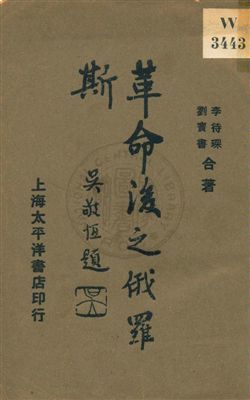 W
3443
李待琛
劉寶書
合著
革命後之俄羅
斯
吳敬恆題
上海太平洋書店印行